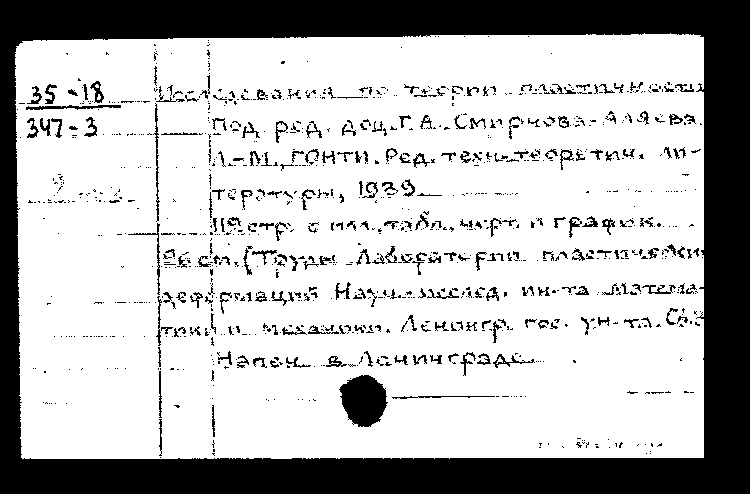 35-18 Исследования по теории пластичности
347-3 Под ред. доц. Г.А. Смирнова-Аляева.
Л.-М., ГОНТИ. Ред. техн.-теоретич. ли-
тературы, 1939.
119 стр. с илл., табл., черт. и график.
26 см. (Труды Лаборатории пластических
деформаций Науч.-исслед. ин-та матема-
тики и механики. Ленингр. гос. ун-та. Сб. 3
Напеч. в Ленинграде.